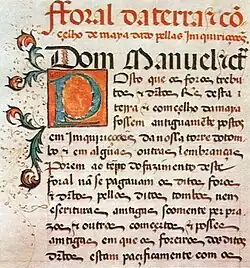 fforal da terra ⁊ cõ
celho de maya dado pellas Jmquiricoões
Dom Manuel ⁊c̃
Posto que os foros trebu
tos ⁊ dr̃tos Reaes desta
terra ⁊ comcelho da maya
fossem antiguamẽte postos
em Jmquiricoões da nossa torre do tom
bo ⁊ em algũas outras lembranças
Porem ao tẽpo do fazimento deste
foral nã se pagauam os ditos foros
⁊ dr̃tos pellos ditos tombos nem
escrituras antiguas soomente per pra
zos ⁊ outros comçertos ⁊ posse
antigua em que os foreiros dos ditos
dr̃tos estam pacificamente com os